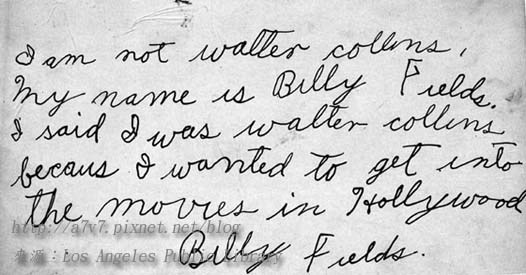 I am not walter collins,
My name is Billy Fields.
I said I was walter collins
becaus I wanted to get into
the movies in Hollywood
http://a7v7.pixnet.net/blog
來源：Los Angeles Public Library
Billy Fields.